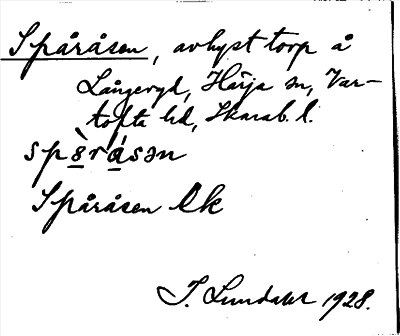 Spåråsen, avhyst torp å
Långeryd, Härja sn, Var-
tofta hd, Skarab. l.
spèrásən
Spåråsen Ek
J. Lundahl 1928.